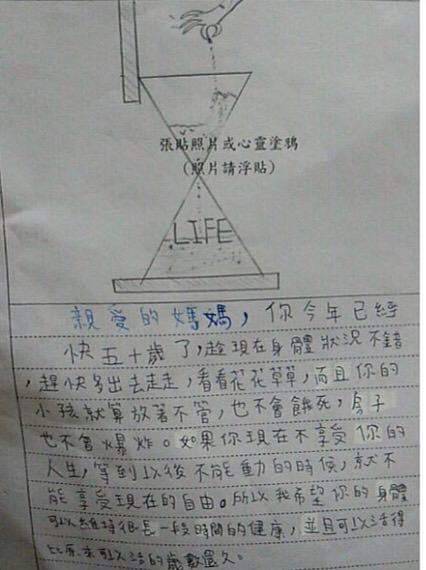 張貼照片或心靈塗鴉
(照片請浮貼)
LIFE
親愛的媽媽,你今年已經
快五十歲了,趁現在身體狀況不錯
,趕快多出去走走,看看花花草草,而且你的
小孩就算放著不管,也不會餓死,房子
也不會爆炸。如果你現在不享受你的
人生,等到以後不能動的時候,就不
能享受現在的自由。所以我希望你的身體
可以維持很長一段時間的健康,並且可以活得
比原來可以活的歲數還久。